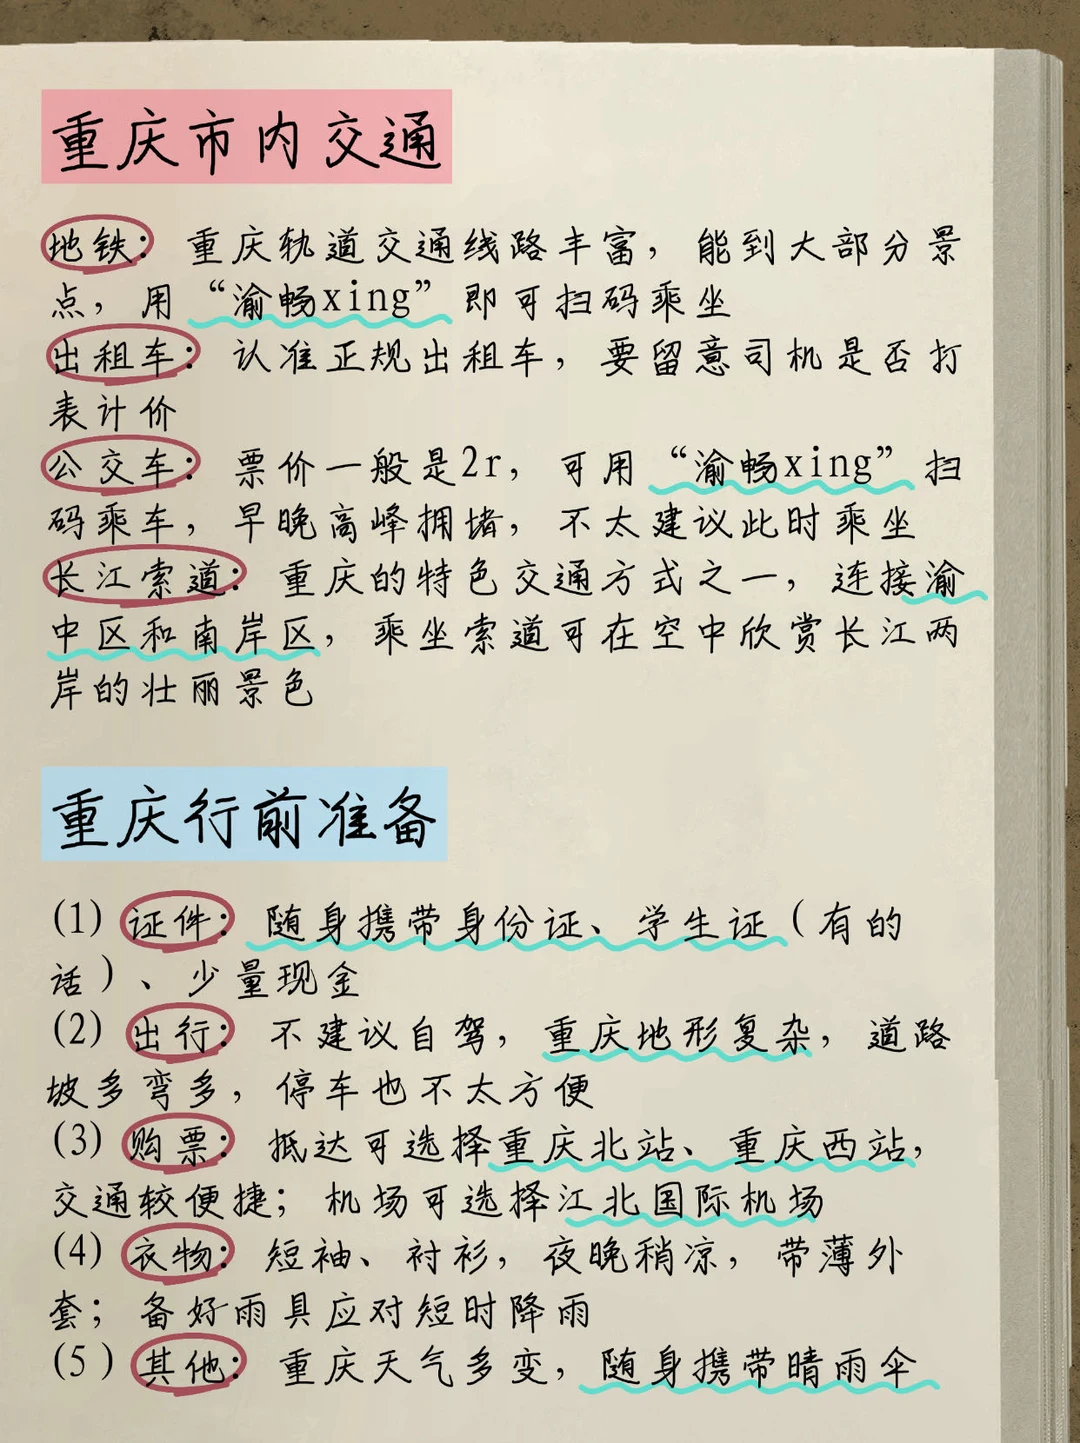 重庆市内交通
地铁：重庆轨道交通线路丰富，能到大部分景
点，用“渝畅xing”即可扫码乘坐
出租车：认准正规出租车，要留意司机是否打
表计价
公交车：票价一般是2r，可用“渝畅xing”扫
码乘车，早晚高峰拥堵，不太建议此时乘坐
长江索道：重庆的特色交通方式之一，连接渝
中区和南岸区，乘坐索道可在空中欣赏长江两
岸的壮丽景色
重庆行前准备
(1) 证件：随身携带身份证、学生证（有的
话）、少量现金
(2) 出行：不建议自驾，重庆地形复杂，道路
坡多弯多，停车也不太方便
(3) 购票：抵达可选择重庆北站、重庆西站，
交通较便捷；机场可选择江北国际机场
(4) 衣物：短袖、衬衫，夜晚稍凉，带薄外
套；备好雨具应对短时降雨
(5) 其他：重庆天气多变，随身携带晴雨伞